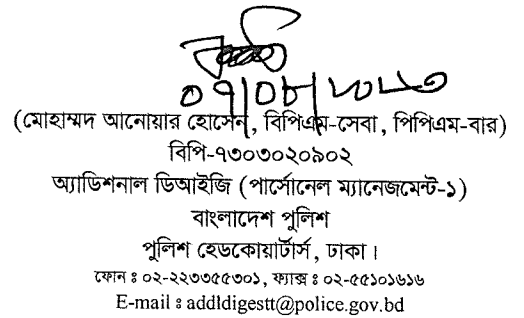 ০৭/০৮/২০২৩
(মোহাম্মদ আনোয়ার হোসেন, বিপিএম-সেবা, পিপিএম-বার)
বিপি-৭৩০৩০২০৯০২
অ্যাডিশনাল ডিআইজি (পার্সোনেল ম্যানেজমেন্ট-১)
বাংলাদেশ পুলিশ
পুলিশ হেডকোয়ার্টার্স, ঢাকা।
ফোন ঃ ০২-২২৩৩৫৫৩০১, ফ্যাক্স ঃ ০২-৫৫১০১৬১৬
E-mail ঃ addldigestt@police.gov.bd